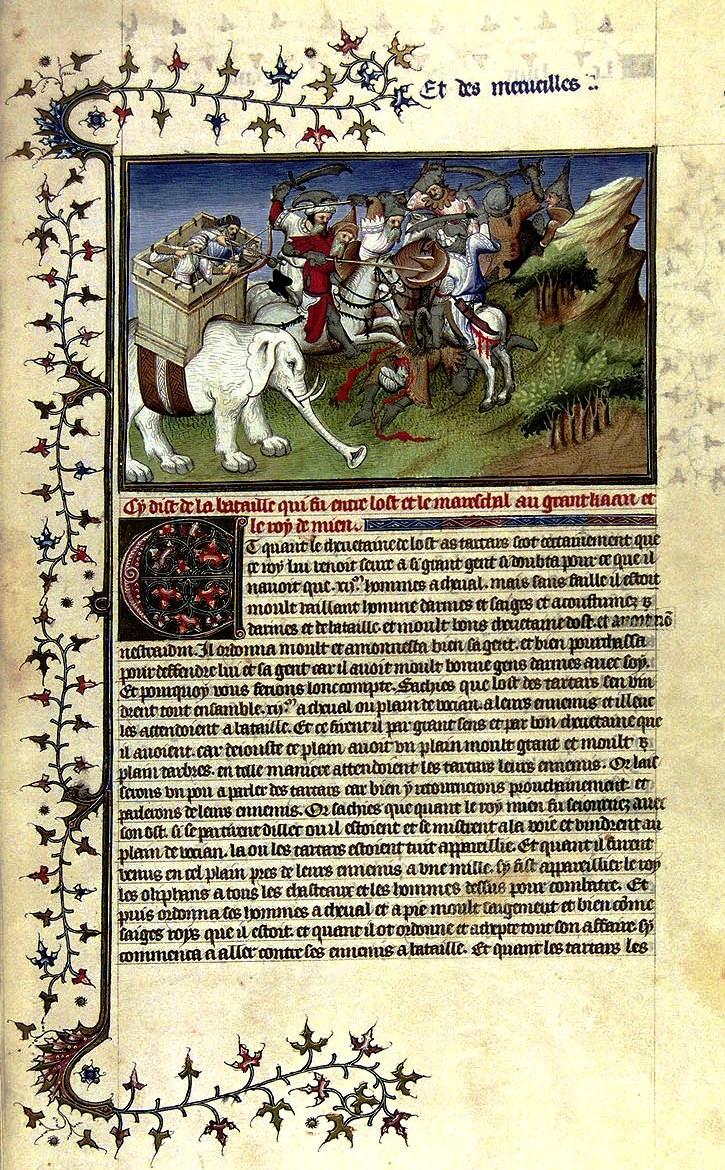 Et des merueilles
Cy dist de la bataille qui fu entre lost et le mareschal au grant kaan et
le roy de mien.
Et quant le cheuetaine de lost as tartars scot certainement que
ce roy lui venoit seure a si grant gent si doubta pour ce que il
nauoit que .xij.m hommes a cheual. mais sans faille il estoit
moult vaillant homme darmes et saiges et acoustumez
darmes et de bataille et moult bons cheuetaine dost. et
Il ordonna moult et amonnesta bien sa gent. et bien pourchassa
pour deffendre lui et sa gent car il auoit moult bonne gens darmes auec soy.
Et pourquoy vous feroins lonc compte. Sachies que lost des tartars sen vin
drent tout ensamble .xij.m a cheual ou plain de vocian. a leurs ennemis et illeuc
les attendoient a bataille. Et ce firent il par grant sens et par bon cheuetaine que
il auoient. car deiouste ce plain auoit vn plain moult grant et moult
plain darbres. en telle maniere attendoient les tartars leurs ennemis. Or lais
serons vn pou a parler des tartars car bien y retournerons prouchainement. et
parlerons de leurs ennemis. Or sachies que quant le roy mien fu seiournez auec
son ost. si se partirent dillec ou il estoient et se mistrent a la voie et vindrent au
plain de vocian. la ou les tartars estoient tuit appareillie. Et quant il furent
venus en cel plain pres de leurs ennemis a vne mille. sy fist appareillier le roy
les oliphans a tous les chasteaux et les hommes dessus pour combatre. Et
puis ordonna ses hommes a cheual et a pie moult saigement et bien come
saiges roys que il estoit. et quant il ot ordonne et adrepte tout son affaire sy
commenca a aller contre ses ennemis a bataille. Et quant les tartars les